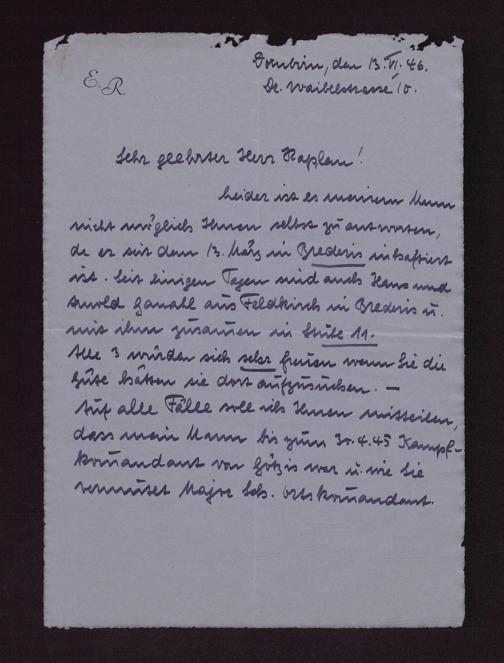 E.R.
Dornbirn, den 13.VI.46.
Dr. Waibelstrasse 10.
Sehr geehrter Herr Kaplan!
Leider ist es meinem Mann
nicht möglich Ihnen selbst zu antworten,
da er seit dem 13. März in Brederis inhaftiert
ist. Seit einigen Tagen sind auch Hans und
Ganahl aus Feldkirch in Brederis u.
mit ihm zusammen in Stube 11.
Alle 3 würden sich sehr freuen wenn Sie die
Güte hätten sie dort aufzusuchen. —
Auf alle Fälle soll ich Ihnen mitteilen,
dass mein Mann bis zum 30.4.45 Kampf-
kommandant von Götzis war u. wie Sie
vermutet Major Sch. Ortskommandant.